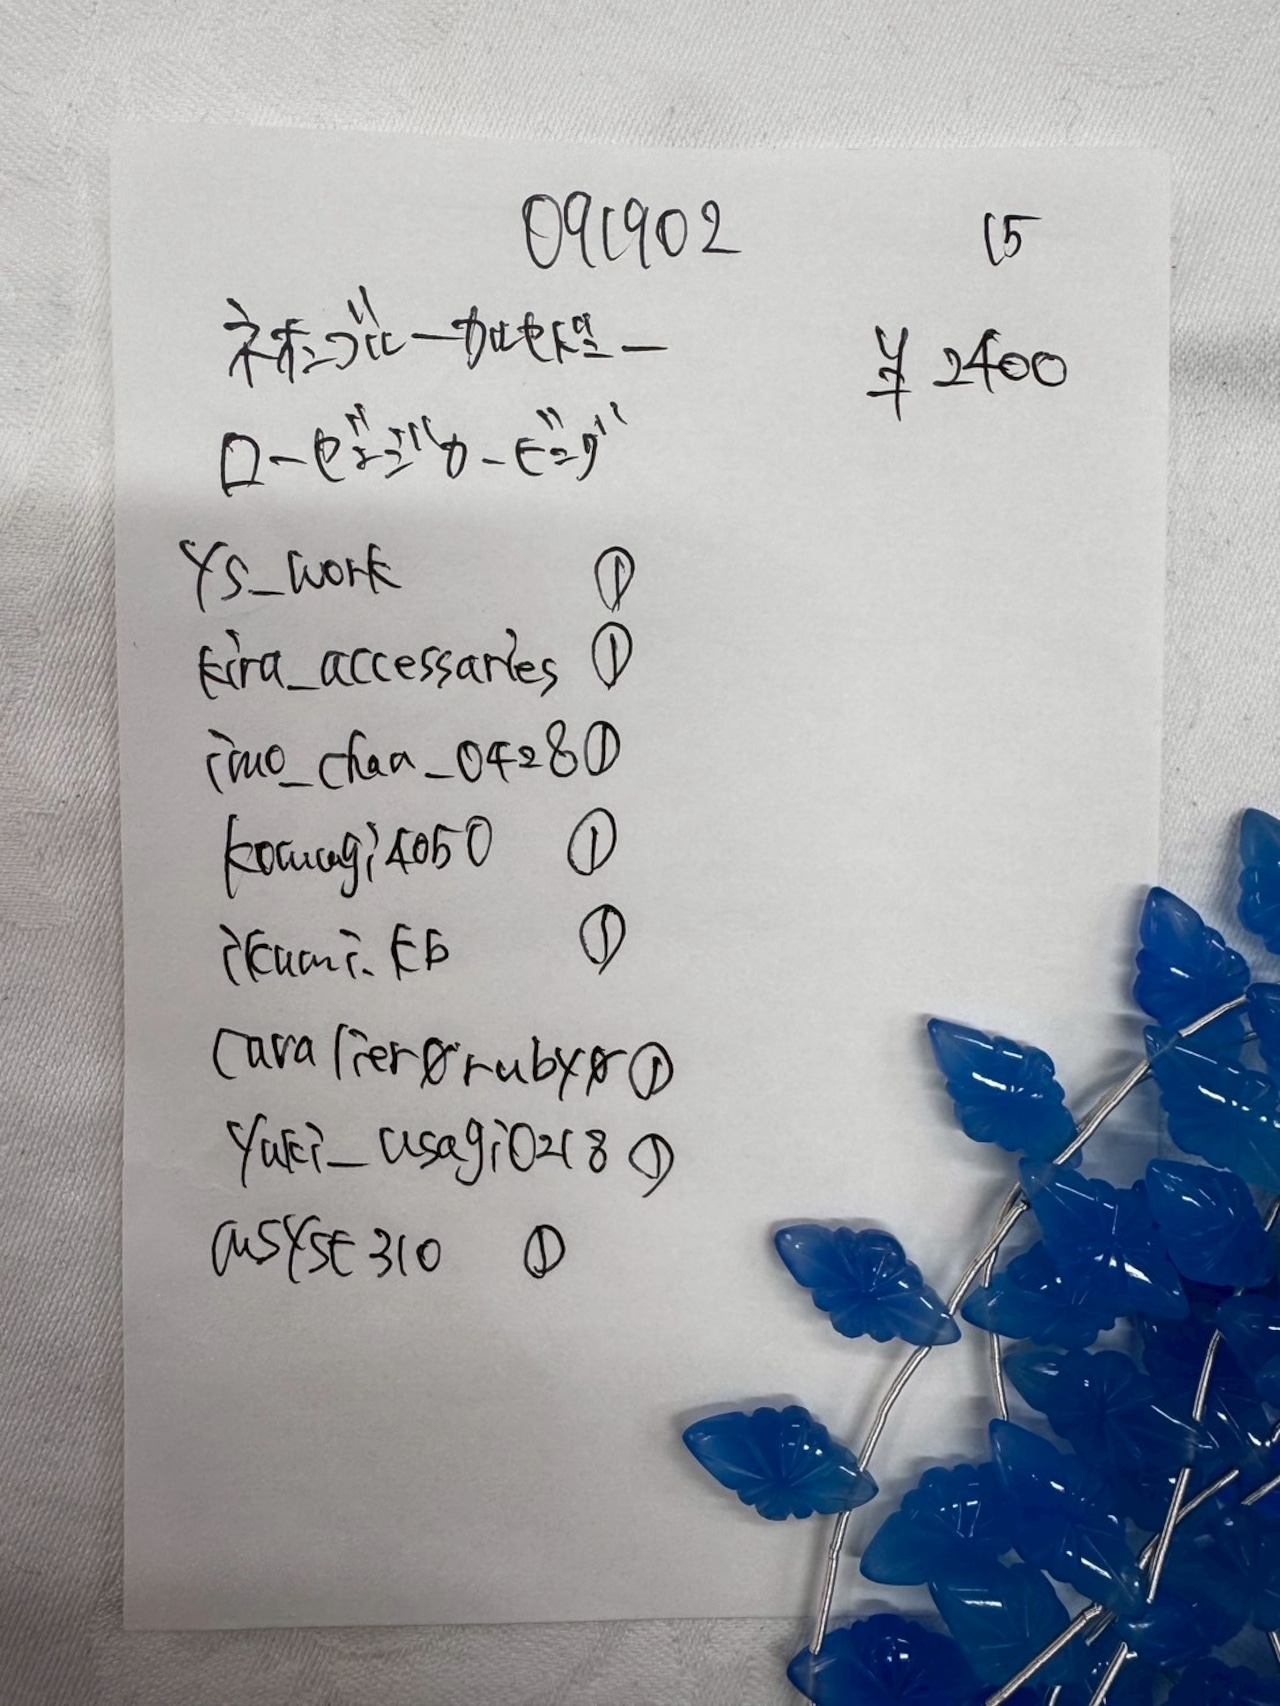 091902 15
ネオンブルーカルセドニー ¥2400
ローズンジカービング
YS_work ①
kira_accessaries ①
imo_chan_0428 ①
komugi4050 ①
ikumi.kb ①
cavalier0ruby0 ①
yuki_usagi0218 ①
310 ①